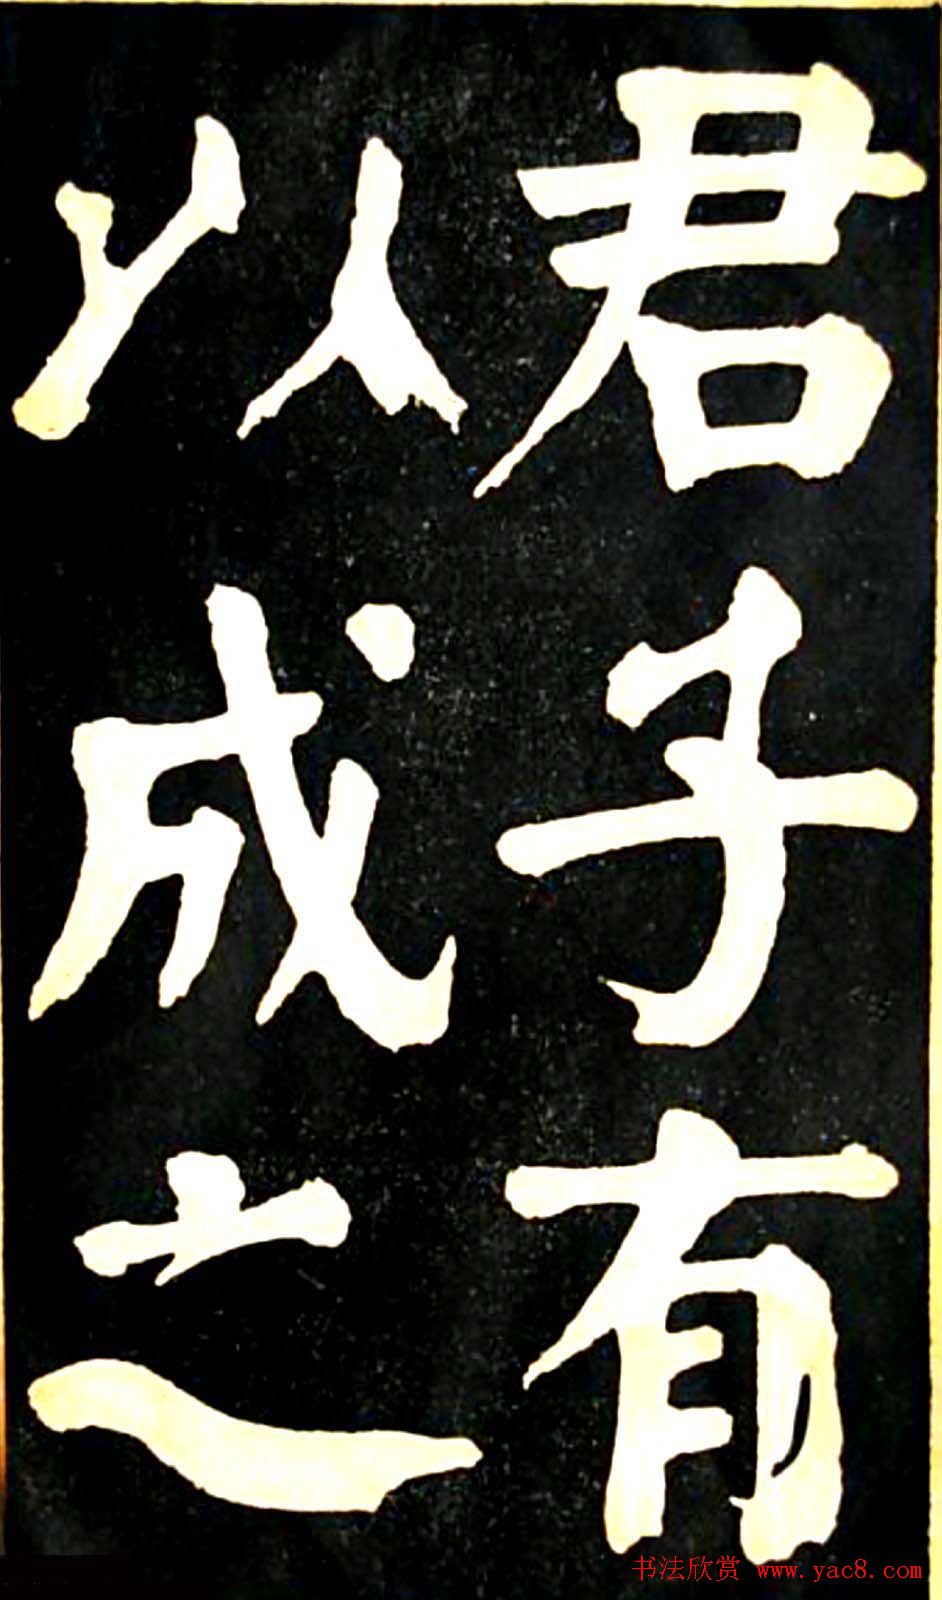 君子有
以成之
书法欣赏 www.yac8.com